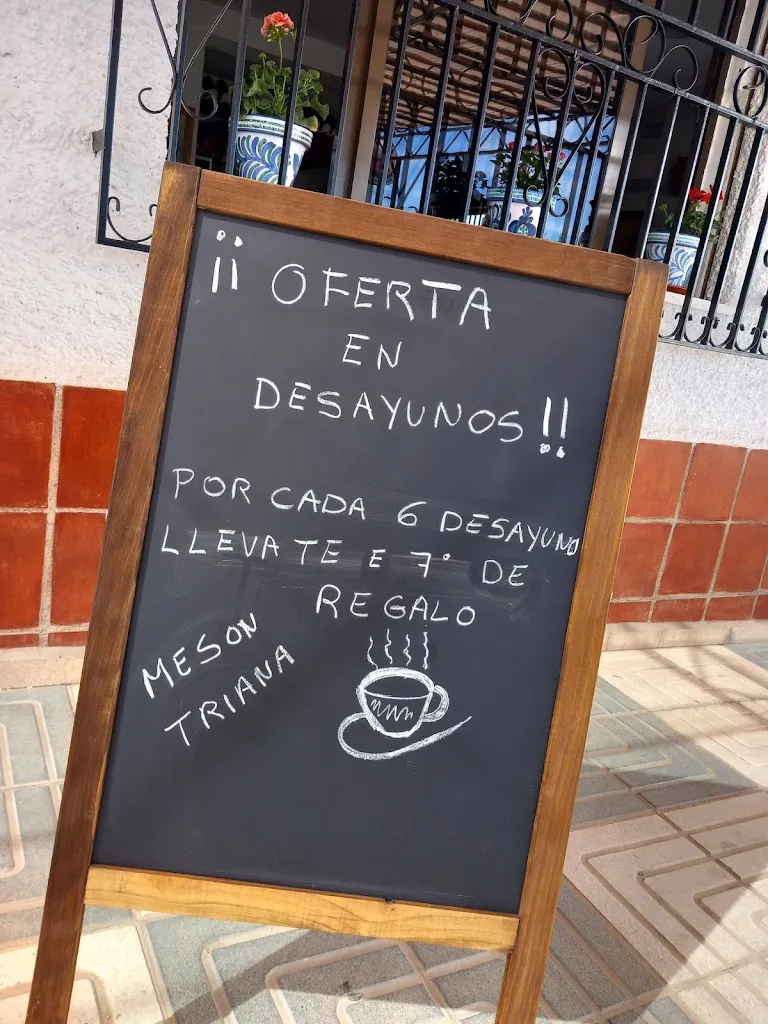 ¡¡ OFERTA
EN
DESAYUNOS !!
POR CADA 6 DESAYUNO
LLEVATE E 7º DE
REGALO
MESON
TRIANA